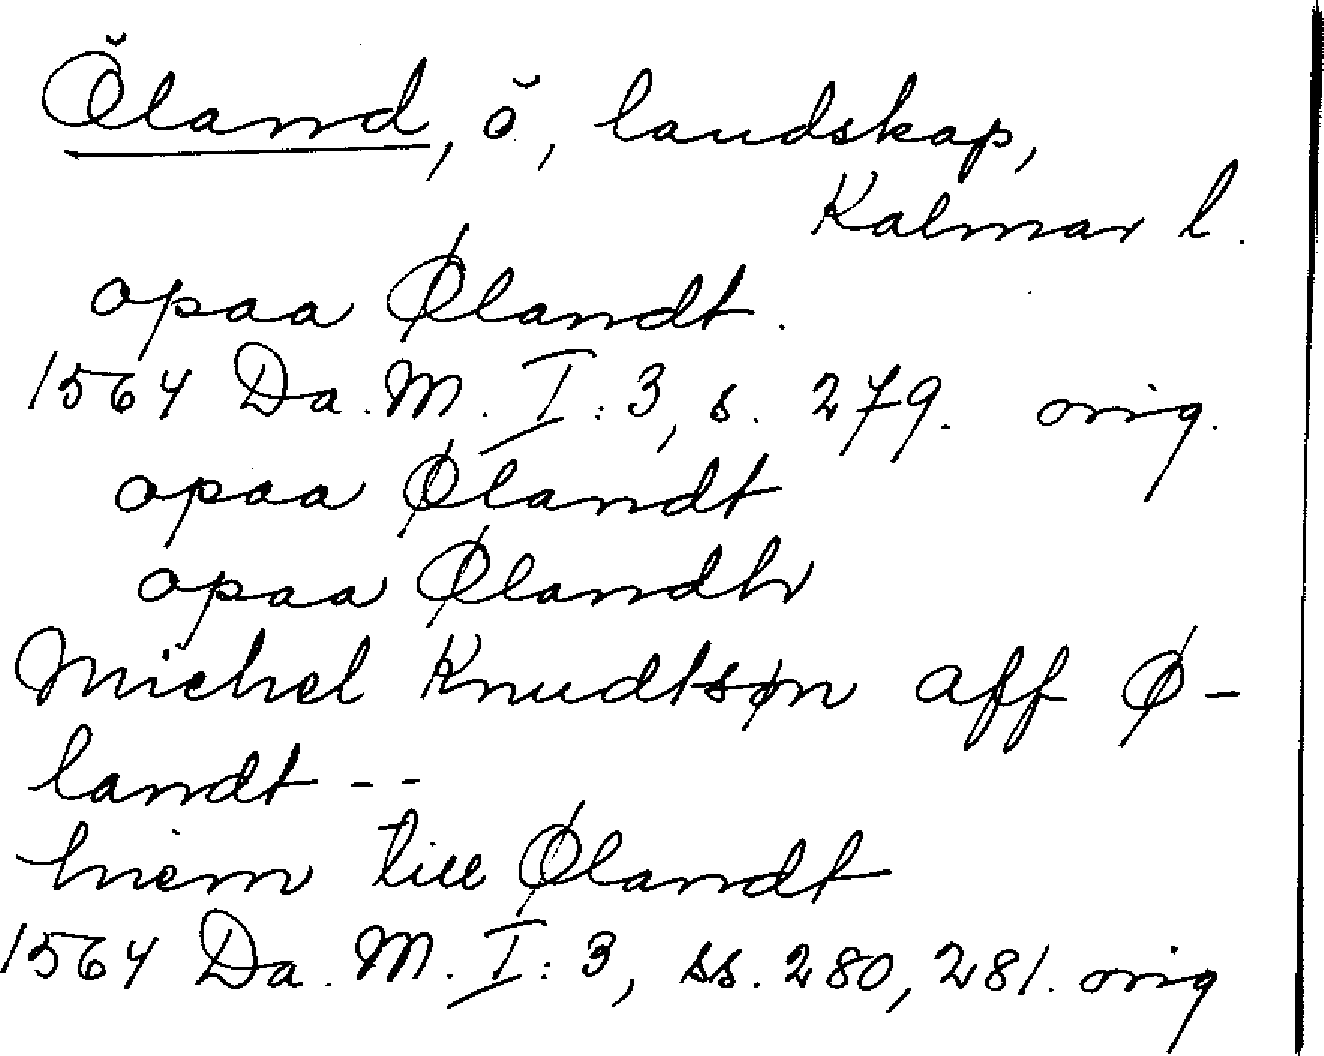 Öland, ö, landskap,
Kalmar l.
opaa Ølandt.
1564 Da. M. I: 3, s. 279. orig.
opaa Ølandt
opaa Ølandh
Michel Knudtsøn aff Ø-
landt - -
hiem till Ølandt
1564 Da. M. I: 3, ss. 280, 281. orig